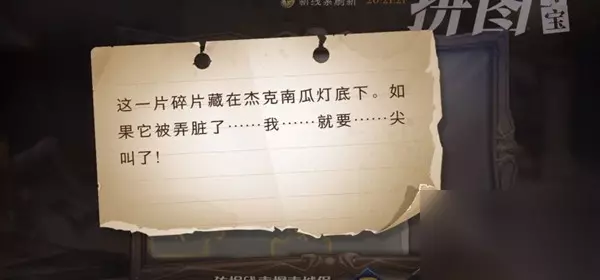 新线索刷新
拼图寻宝
这一片碎片藏在杰克南瓜灯底下。如
果它被弄脏了……我……就要……尖
叫了！